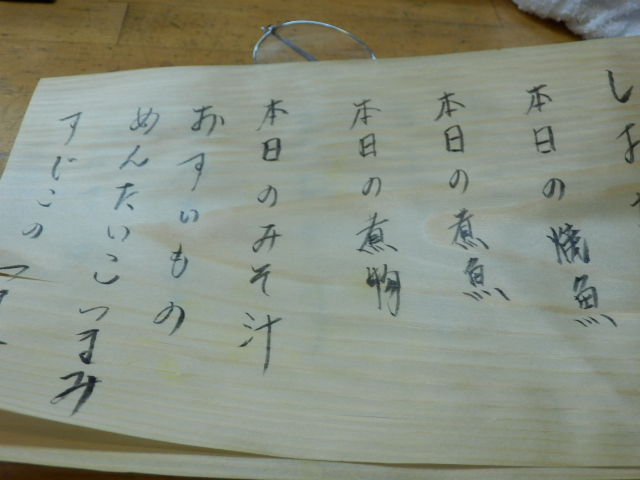 本日の焼魚
本日の煮魚
本日の煮物
本日のみそ汁
おすいもの
めんたいこつまみ
すじこの